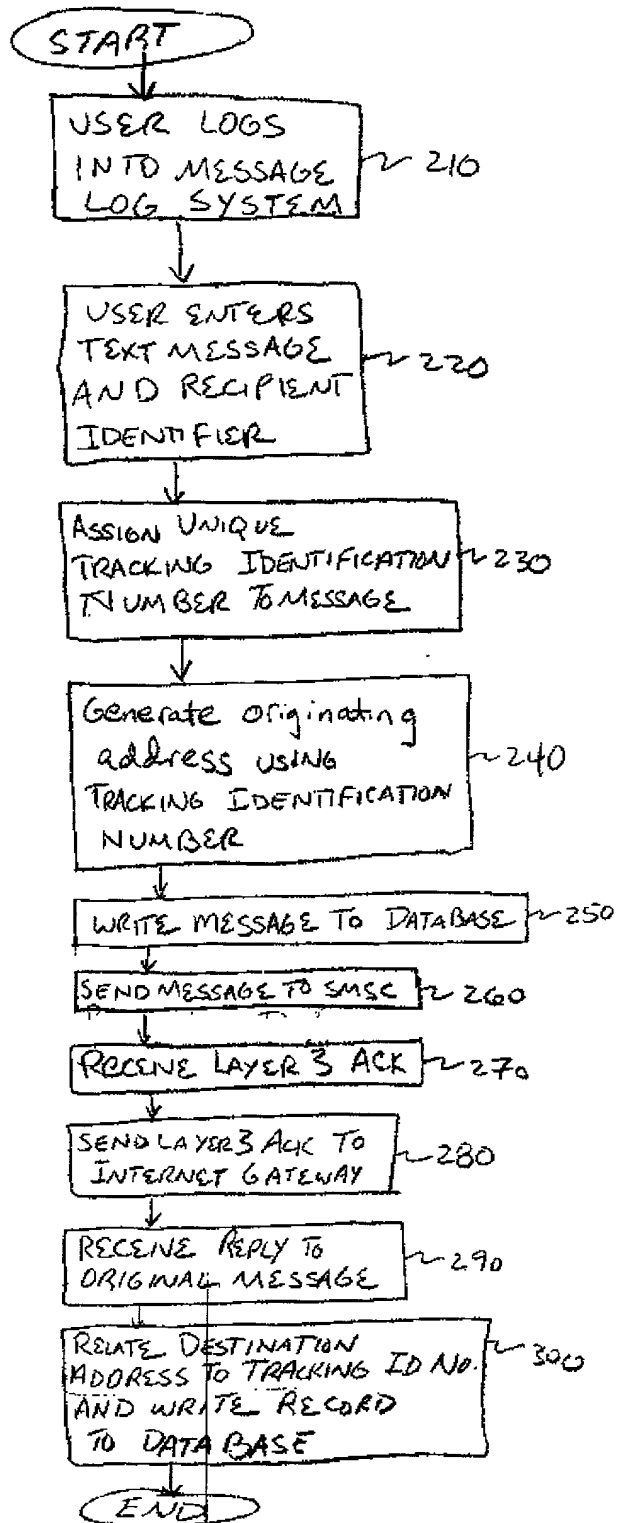 START
USER LOGS
INTO MESSAGE
LOG SYSTEM
210
USER ENTERS
TEXT MESSAGE
AND RECIPIENT
IDENTIFIER
220
ASSIGN UNIQUE
TRACKING IDENTIFICATION
NUMBER TO MESSAGE
230
Generate originating
address USING
TRACKING IDENTIFICATION
NUMBER
240
WRITE MESSAGE TO DATABASE
250
SEND MESSAGE TO SMSC
260
RECEIVE LAYER 3 ACK
270
SEND LAYER 3 ACK TO
INTERNET GATEWAY
280
RECEIVE REPLY TO
ORIGINAL MESSAGE
290
RELATE DESTINATION
ADDRESS TO TRACKING ID NO.
AND WRITE RECORD
TO DATABASE
300
END